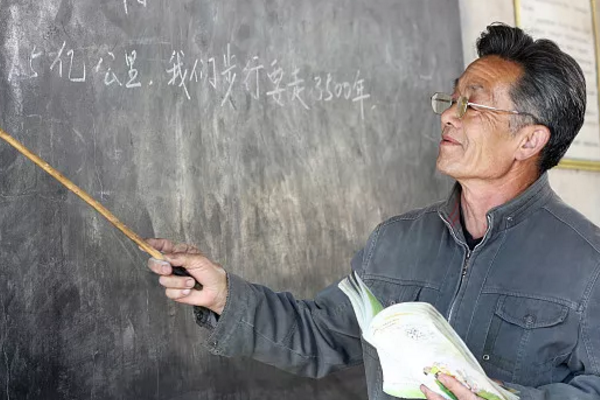 1.5亿公里.我们步行要走3500年.